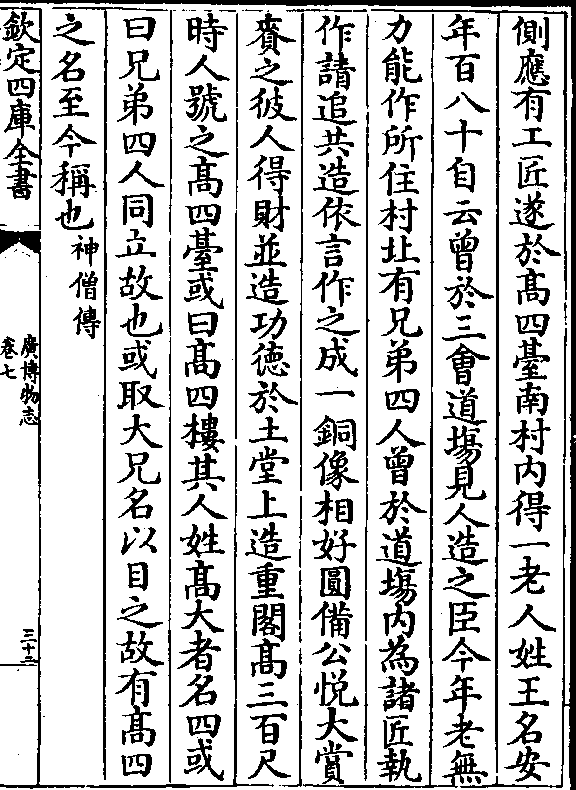 側應有工匠遂於髙四臺南村内得一老人姓王名安
年百八十自云曾於三會道塲見人造之臣今年老無
力能作所住村北有兄弟四人曾於道塲内為諸匠執
作請追共造依言作之成一銅像相好圓備公悦大賞
賚之彼人得財並造功徳於土堂上造重閣髙三百尺
時人號之髙四臺或曰髙四樓其人姓髙大者名四或
曰兄弟四人同立故也或取大兄名以目之故有髙四
之名至今稱也神僧傳
欽定四庫全書
廣博物志
卷七
三十二